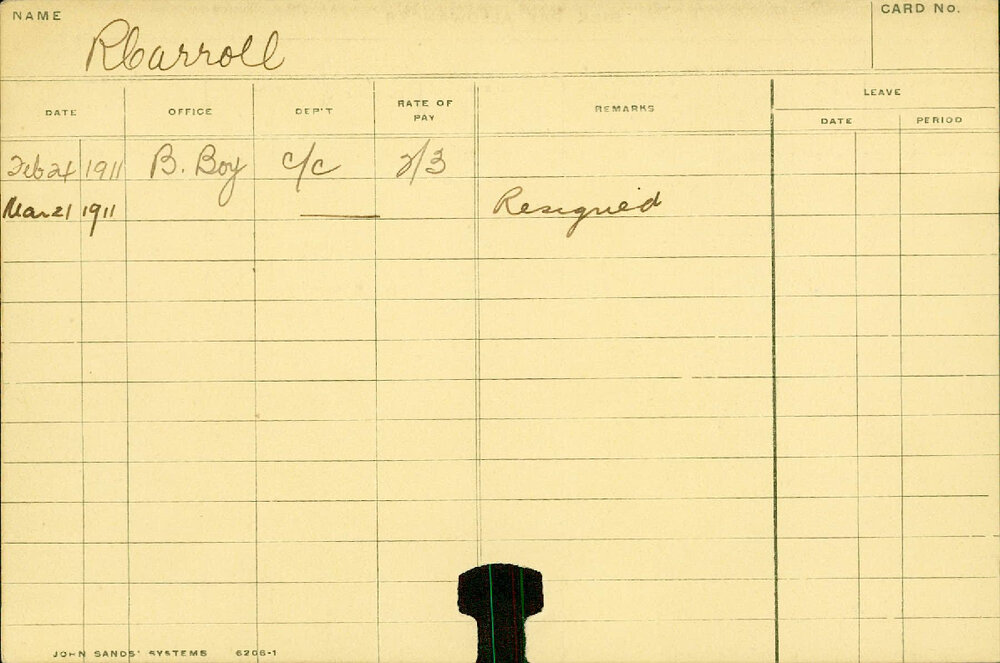 NAME
CARD No.
R Carroll
DATE OFFICE DEP'T RATE OF PAY REMARKS LEAVE
DATE PERIOD
Feb 24 1911 B. Boy c/c 2/3
Mar 21 1911 — Resigned
JOHN SANDS' SYSTEMS 6206-1